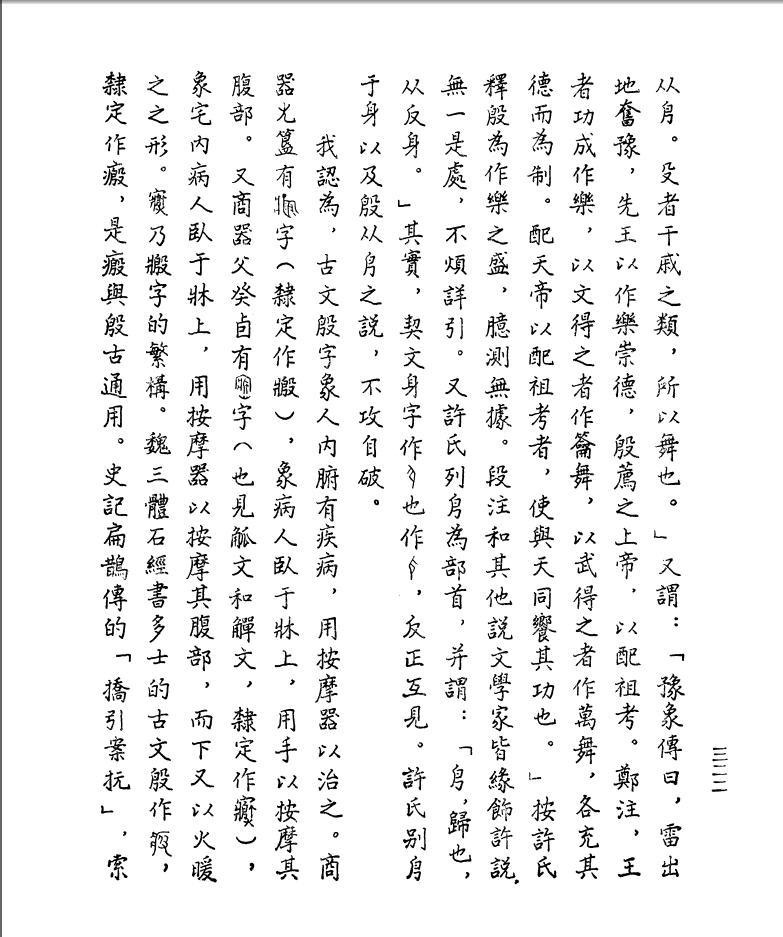 从㐆。殳者干戚之類,所以舞也。」又謂:「豫象傳曰,雷出
地奮豫,先王以作樂崇德,殷薦之上帝,以配祖考。鄭注,王
者功成作樂,以文得之者作籥舞,以武得之者作萬舞,各充其
德而為制。配天帝以配祖考者,使與天同饗其功也。」按許氏
釋殷為作樂之盛,臆測無據。段注和其他説文學家皆緣飾許説,
無一是處,不煩詳引。又許氏列㐆為部首,并謂:「㐆,歸也,
从反身。」其實,契文身字作也作,反正互見。許氏别㐆
于身以及殷从㐆之説,不攻自破。
我認為,古文殷字象人内腑有疾病,用按摩器以治之。商
器光簋有字(隸定作),象病人臥于牀上,用手以按摩其
腹部。又商器父癸卣有字(也見觚文和觶文,隸定作),
象宅内病人臥于牀上,用按摩器以按摩其腹部,而下又以火暖
之之形。乃字的繁構。魏三體石經書多士的古文殷作,
隸定作瘢,是瘢與殷古通用。史記扁鵲傳的「撟引案抏」,索
三二二